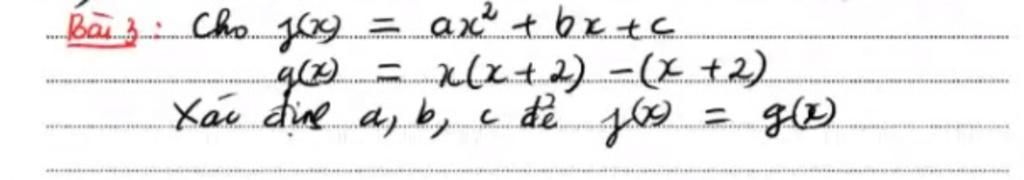 Bài 3: Cho f(x) = ax² + bx + c
g(x) = x(x + 2) - (x + 2)
Xác định a, b, c để f(x) = g(x)